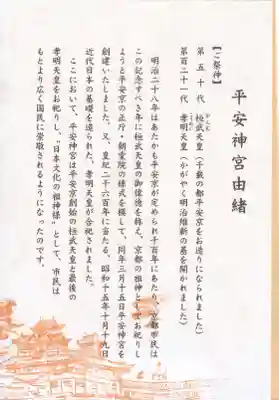 平安神宮由緒
【ご祭神】
第五十代 桓武天皇(千載の都平安京をお造りになられました)
第百二十一代 孝明天皇(かがやく明治維新の基を開かれました)
明治二十八年はあたかも平安京が定められ千百年にあたり、京都市民は
この記念すべき年に桓武天皇の御偉徳を称え、京都の祖神としてお祀りし
ようと平安京の正庁、朝堂院の様式を模して、同年三月十五日平安神宮を
創建いたしました。又、皇紀二千六百年に当たる、昭和十五年十月十九日
近代日本の基礎を造られた、孝明天皇が合祀されました。
ここにおいて、平安神宮は平安京創始の桓武天皇と最後の
孝明天皇をお祀りし、"日本文化の祖神様"として、市民は
もとより広く国民に崇敬されるようになったのです。